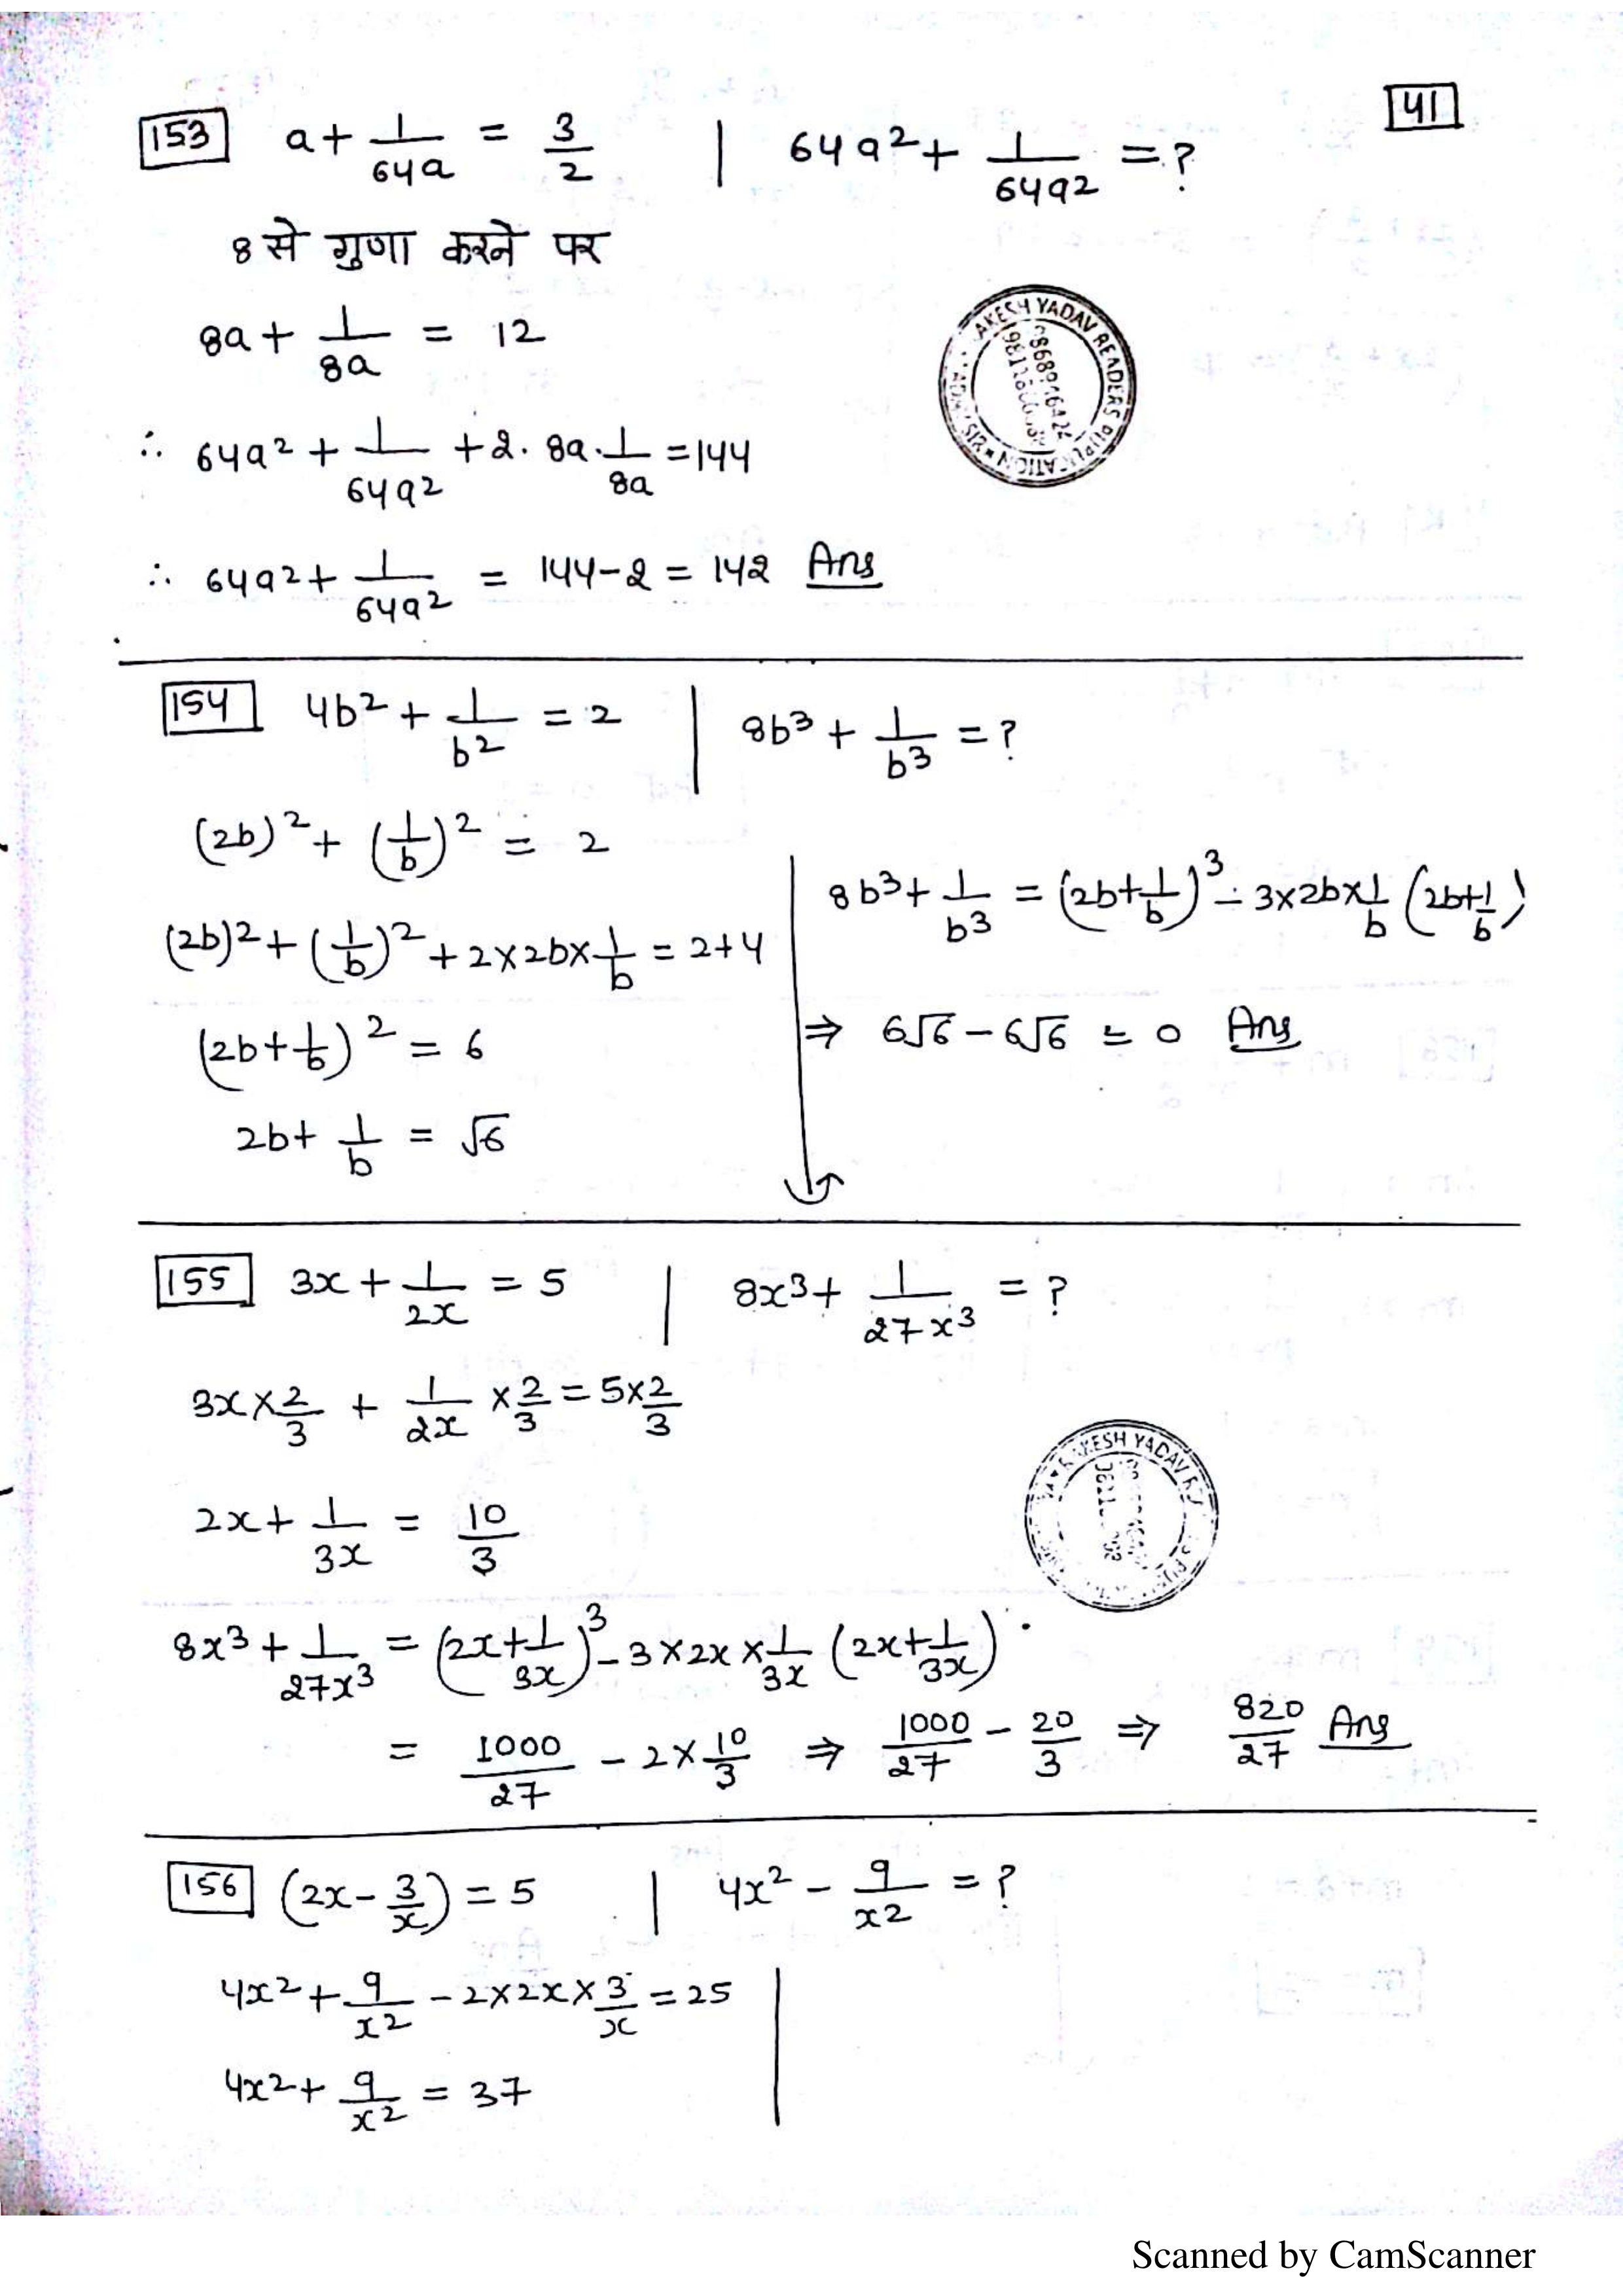 41
153 a + 1/64a = 3/2 | 64a² + 1/64a² = ?
8 से गुणा करने पर
8a + 1/8a = 12
∴ 64a² + 1/64a² + 2. 8a. 1/8a = 144
∴ 64a² + 1/64a² = 144 - 2 = 142 Ans
154 4b² + 1/b² = 2 | 8b³ + 1/b³ = ?
(2b)² + (1/b)² = 2
(2b)² + (1/b)² + 2×2b×1/b = 2+4
(2b + 1/b)² = 6
2b + 1/b = √6
8b³ + 1/b³ = (2b + 1/b)³ - 3×2b×1/b (2b + 1/b)
⇒ 6√6 - 6√6 = 0 Ans
155 3x + 1/2x = 5 | 8x³ + 1/27x³ = ?
3x × 2/3 + 1/2x × 2/3 = 5×2/3
2x + 1/3x = 10/3
8x³ + 1/27x³ = (2x + 1/3x)³ - 3×2x×1/3x (2x + 1/3x)
= 1000/27 - 2×10/3 ⇒ 1000/27 - 20/3 ⇒ 820/27 Ans
156 (2x - 3/x) = 5 | 4x² - 9/x² = ?
4x² + 9/x² - 2×2x×3/x = 25
4x² + 9/x² = 37
AKESH YADAV READERS PUBLICATION
KESH YADAV
Scanned by CamScanner